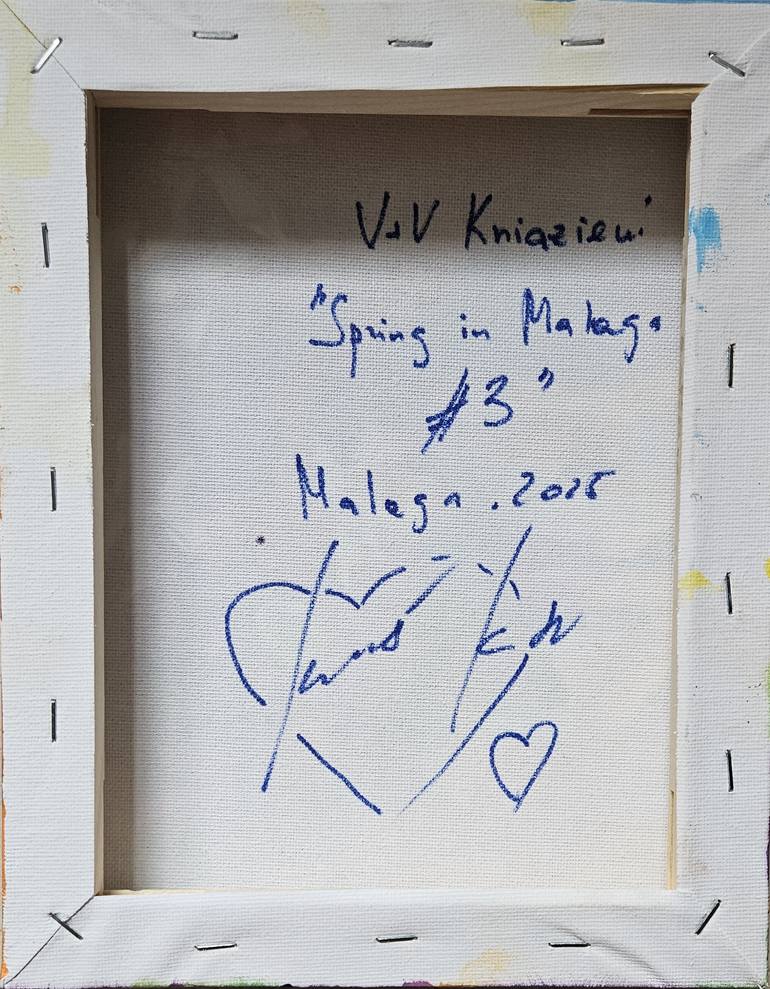 V+V Kniazievi
"Spring in Malaga
#3"
Malaga . 2025